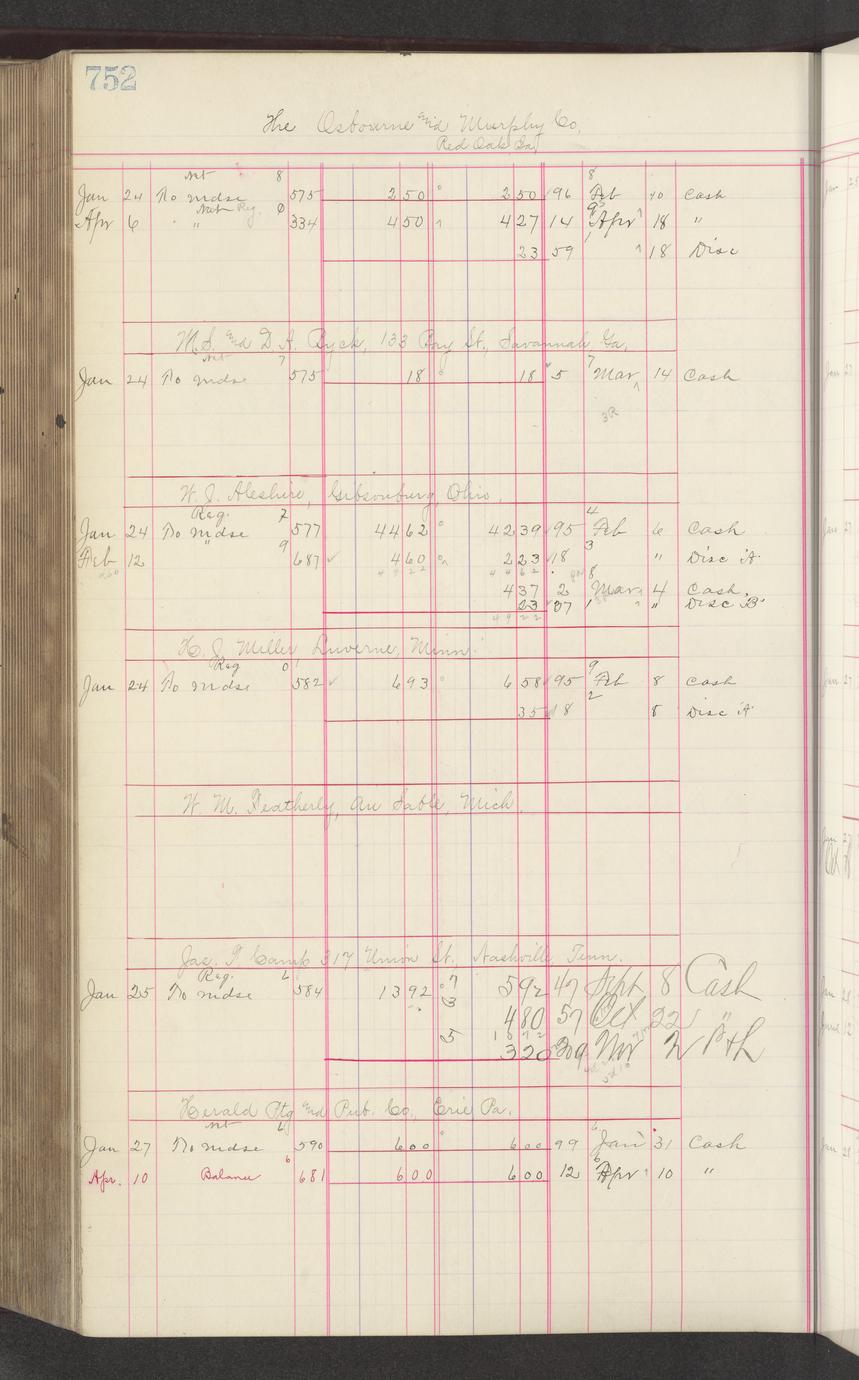 752
The Osbourne and Murphy Co,
Red Oak Ga,
Net 8 8
Jan 24 To mdse 575 250 250 96 Feb 10 Cash
Net Reg. 0 9
Apr 6 " " 334 450 427 14 Apr 18 "
23 59 18 Disc
M.S. and D.A. Byck, 133 Bay St., Savannah Ga,
Net 7 7
Jan 24 To mdse 575 18 18 5 Mar 14 Cash
3R
W. J. Aleshire, Gibsonburg, Ohio,
Reg. 7 4
Jan 24 To mdse 577 4462 4239 95 Feb 6 Cash
" 9 3
Feb 12 687 460 223 18 " Disc "A"
4922 4462 8
437 2 Mar 4 Cash,
23 37 " Disc "B"
4922
H. J. Miller Luverne, Minn.
Reg 0 9
Jan 24 To mdse 582 693 658 95 Feb 8 Cash
2
35 18 8 Disc "A"
W. M. Featherly, Au Sable, Mich.
Jas. T Camp 317 Union St. Nashville Tenn.
Reg. 6
Jan 25 To mdse 584 1392 7 592 47 Sept 8 Cash
3 480 57 Oct 22 "
5 320 209 Nov 2
Herald Ptg and Pub. Co, Erie Pa.
Nt 6 6
Jan 27 To mdse 590 600 600 99 Jan 31 Cash
6 6
Apr. 10 Balance 681 600 600 12 Apr 10 "